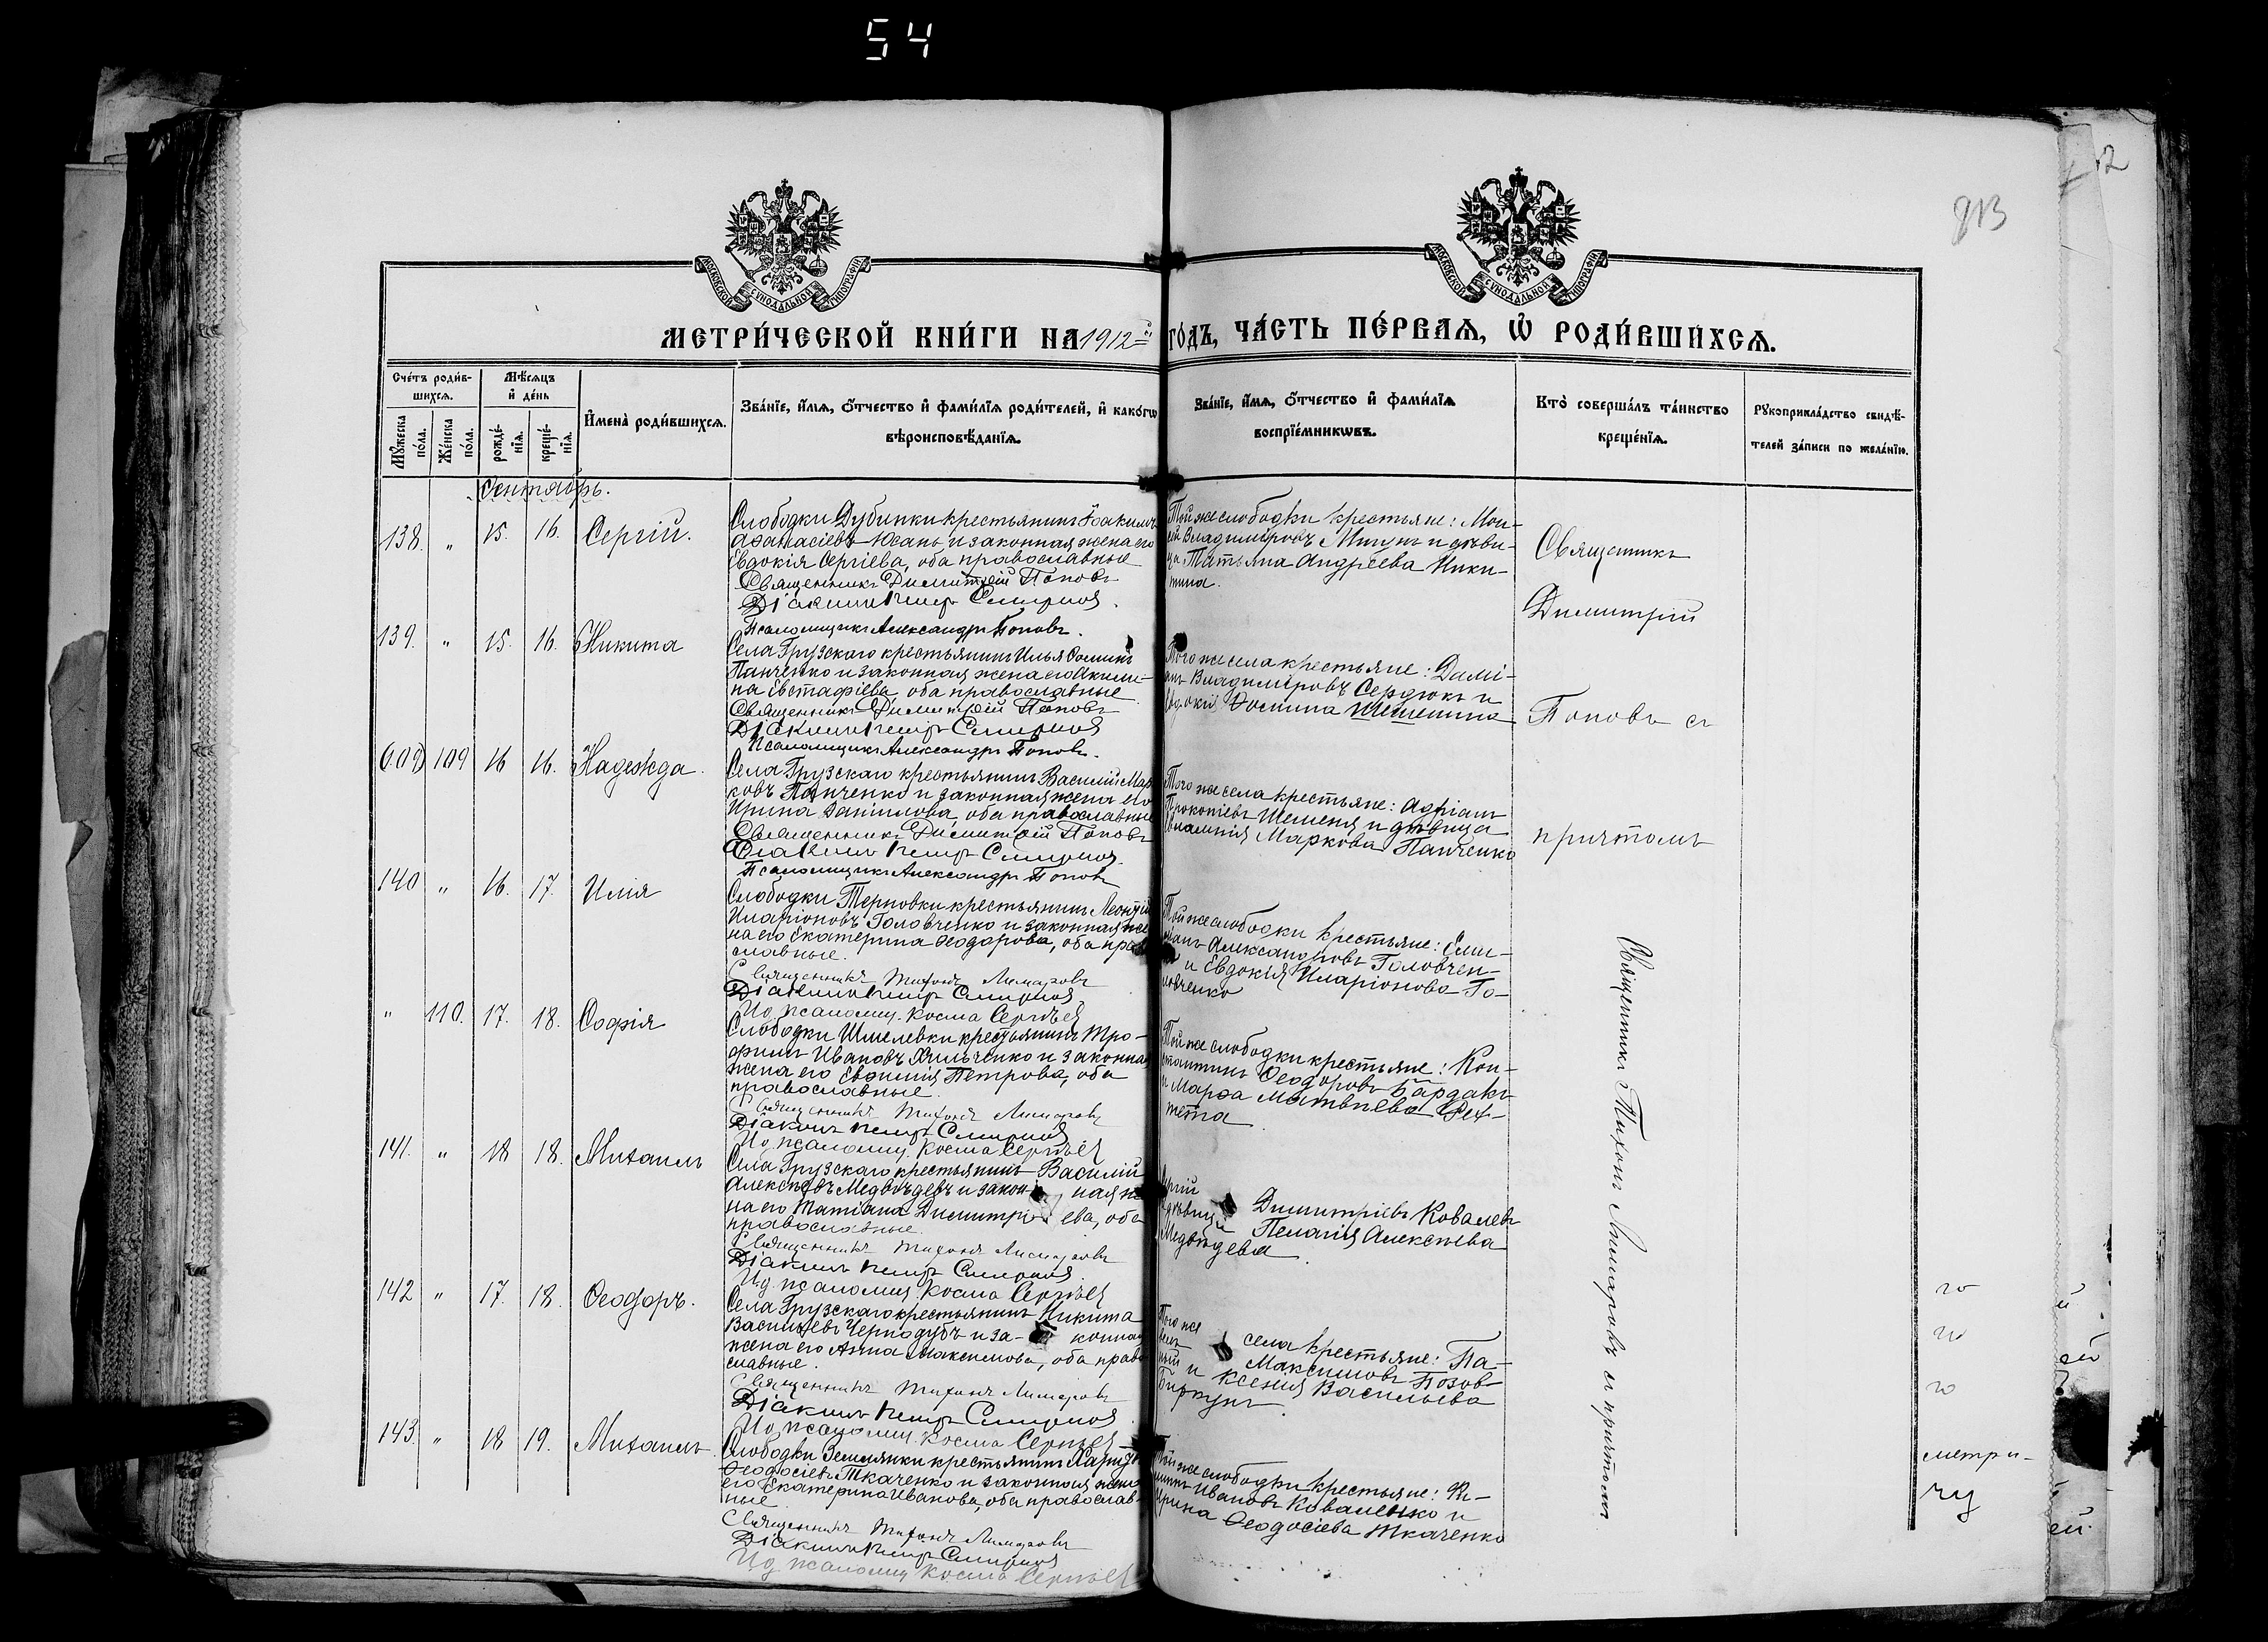 54
813
МОСКОВСКОЙ СѴНОДАЛЬНОЙ ТИПОГРАФІИ
МОСКОВСКОЙ СѴНОДАЛЬНОЙ ТИПОГРАФІИ
МЕТРИ́ЧЕСКОЙ КНИ́ГИ НА 1912й ГО́ДЪ, ЧА́СТЬ ПЕ́РВАѦ, Ѡ҆ РОДИ́ВШИХСѦ.
Сче́тъ роди́в-
шихсѧ.
Мꙋ́жеска по́ла.
Же́нска по́ла.
Мѣ́сѧцъ
и҆ де́нь
рожде́-
нїѧ.
креще́-
нїѧ.
И҆мена̀ роди́вшихсѧ.
Зва́нїе, и҆́мѧ, ѻ҆́тчество и҆ фами́лїѧ роди́телей, и҆ како́гѡ
вѣроисповѣ́данїѧ.
Зва́нїе, и҆́мѧ, ѻ҆́тчество и҆ фами́лїѧ
воспрїе́мникѡвъ.
Кто̀ соверша́лъ та́инство
креще́нїѧ.
Рꙋкоприкла́дство свидѣ́-
телей за́писи по жела́нїю.
Сентябрь.
138. " 15. 16. Сергій.
Слободки Дубинки крестьянинъ Іоакимъ
Аѳанасіевъ Юсанъ и законная жена его
Евдокія Сергіева, оба православные
Священникъ Димитрій Поповъ
Діаконъ Петръ Смирнов
Псаломщикъ Александръ Поповъ.
Той же слободки крестьяне: Мои-
сей Владиміровъ Мигунъ и дѣви-
ца Татьяна Андреева Ники-
тина.
Священникъ
Димитрій
Поповъ съ
причтомъ
139. " 15. 16. Никита
Села Грузскаго крестьянинъ Илья Ѳоминъ
Панченко и законная жена его Акили-
на Евстафіева, оба православные
Священникъ Димитрій Поповъ
Діаконъ Петръ Смирнов
Псаломщикъ Александръ Поповъ.
Того же села крестьяне: Дамі-
анъ Владиміровъ Сердюкъ и
Евдокія Ѳомина
109 16 16. Надежда.
Села Грузскаго крестьянинъ Василій Мар
ковъ Панченко и законная жена его
Ирина Даніилова, оба православные
Священникъ Димитрій Поповъ
Діаконъ Петръ Смирнов.
Псаломщикъ Александръ Поповъ
Того же села крестьяне: Адріанъ
Прокопіевъ Шеменя и дѣвица
Евлампія Маркова Панченко
140 " 16. 17. Илія
Слободки Терновки крестьянинъ Леонтій
Иларіоновъ Головченко и законная же
на его Екатерина Ѳеодорова, оба право
славные.
Священникъ Тихонъ Лимаровъ
Діаконъ Петръ Смирнов
Ид. псаломщ. Косма Сергѣев
Той же слободки крестьяне: Еми-
ліанъ Александровъ Головчен-
и Евдокія Иларіонова Го-
ловченко
" 110. 17. 18. Софія
Слободки Шмелевки крестьянинъ Тро-
фимъ Ивановъ Хильченко и законная
жена его Евфимія Петрова, оба
православные.
Священникъ Тихонъ Лимаровъ
Діаконъ Петръ Смирнов
Ид. псаломщ. Косма Сергѣев
Той же слободки крестьяне: Кон-
стантинъ Ѳеодоровъ Бардакъ
и Марѳа Матвѣева Рех-
тета
141. " 18 18. Михаилъ
Села Грузскаго крестьянинъ Василій
Алексѣевъ Медвѣдевъ и закон ная же
на его Татіана Димитрі ева, оба
православные
Священникъ Тихонъ Лимаровъ
Діаконъ Петръ Смирнов.
Ид. псаломщ. Косма Сергѣев
Димитріевъ Ковалевъ
дѣвица Пелагія Алексѣева
Медвѣдева.
142 " 17. 18. Ѳеодоръ.
Села Грузскаго крестьянинъ Никита
Васильевъ Чернодубъ и за- конная
жена его Анна Максимова, оба право
славные.
Священникъ Тихонъ Лимаровъ
Діаконъ Петръ Смирнов.
Ид. псаломщ. Косма Сергѣев
Того же села крестьяне: Па-
велъ Максимовъ
и Ксенія Васильева
143. " 18 19. Михаилъ.
Слободки Землянки крестьянинъ
Ѳеодосіевъ Ткаченко и законная жена
его Екатерина Иванова, оба православ-
ные.
Священникъ Тихонъ Лимаровъ
Діаконъ Петръ Смирнов
Ид. псаломщ. Косма Сергѣев
Той же слободки крестьяне: Фи-
липпъ Ивановъ Коваленко и
Ирина Ѳеодосіева Ткаченко
Священникъ Тихонъ Лимаровъ съ причтомъ.
го
го
го
метри-
чу